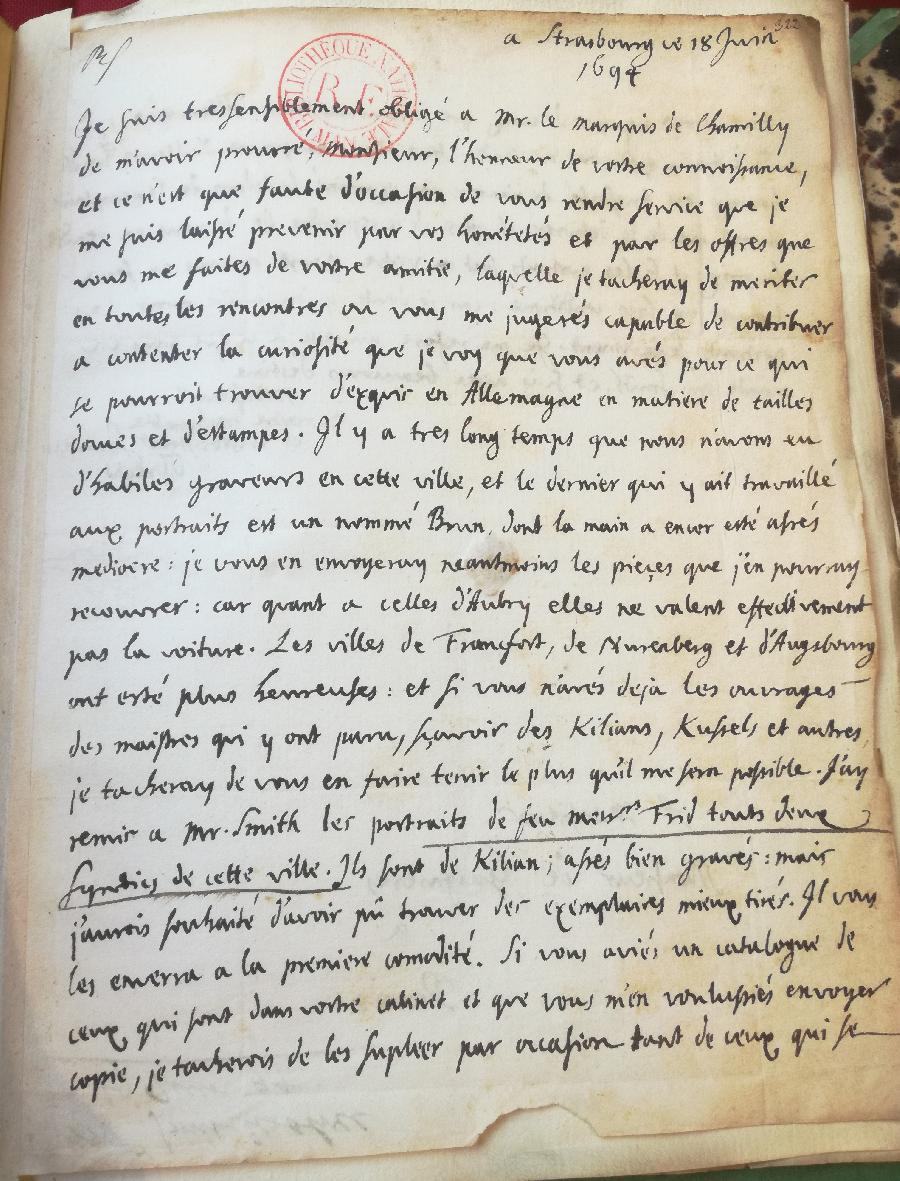 322
R/
a Strasbourg ce 18 Juin
1694
BIBLIOTHEQUE NATIONALE
R.F.
Je suis tressensiblement obligé a Mr. le marquis de Chamilly
de m'avoir procuré, Monsieur, l'honneur de vostre connoissance,
et ce n'est que faute d'occasion de vous rendre service que je
me suis laissé prevenir par vos honétetés et par les offres que
vous me faites de vostre amitie, laquelle je tacheray de meriter
en toutes les rencontres ou vous me jugerés capable de contribuer
a contenter la curiosité que je voy que vous avés pour ce qui
se pourroit trouver d'exquis en Allemagne en matiere de tailles
douces et d'estampes. Il y a tres long temps que nous n'avons eu
d'habiles graveurs en cette ville, et le dernier qui y ait travaillé
aux portraits est un nommé Brun, dont la main a encor esté assés
mediocre: je vous en envoyeray neantmoins les pieçes que j'en pourray
recouvrer: car quant a celles d'Aubry elles ne valent effectivement
pas la voiture. Les villes de Francfort, de Nurenberg et d'Augsbourg
ont esté plus heureuses: et si vous n'avés deja les ouvrages
des maistres qui y ont paru, sçavoir des Kilians, Kussels et autres,
je tacheray de vous en faire tenir le plus qu'il me sera possible. J'ay
remis a Mr. Smith les portraits de feu Messrs Frid touts deux
Syndics de cette ville. Ils sont de Kilian; assés bien gravés: mais
j'aurois souhaité d'avoir pû trouver des exemplaires mieux tirés. Il vous
les enverra a la premiere comodité. Si vous aviés un catalogue de
ceux qui sont dans vostre cabinet et que vous m'en voulussiés envoyer
copie, je tacherois de les supleer par occasion tant de ceux qui se